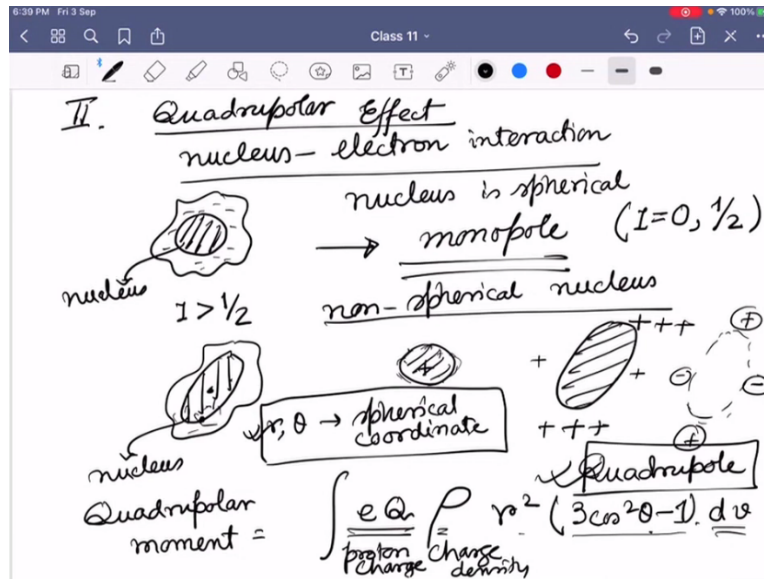 6:39 PM Fri 3 Sep
100%
Class 11
II. Quadrupolar Effect
nucleus – electron interaction
nucleus is spherical
monopole (I=0, 1/2)
nucleus
I > 1/2
non-spherical nucleus
+ + + +
+ +
r, θ → spherical
coordinate
+ + +
nucleus
Quadrupole
Quadrupolar
moment = ∫ eQ ρ r² (3cos²θ-1). dv
proton charge
charge density